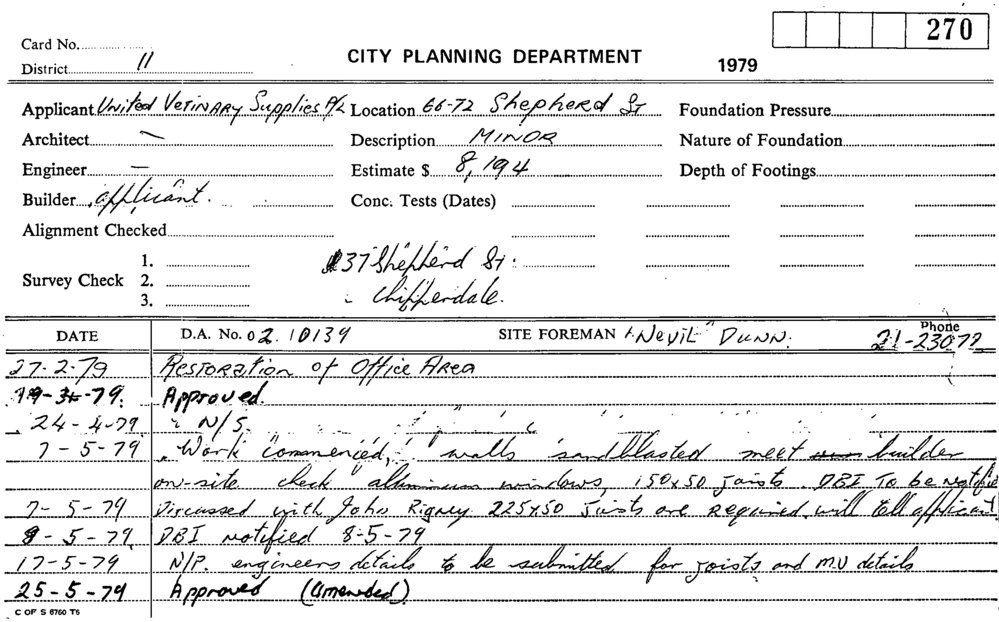 270
Card No.
CITY PLANNING DEPARTMENT
1979
District 11
Applicant United Vetinary Supplies P/L Location 66-72 Shepherd St Foundation Pressure
Architect — Description MINOR Nature of Foundation
Engineer — Estimate $ 8,194 Depth of Footings
Builder applicant. Conc. Tests (Dates)
Alignment Checked
Survey Check 1.
2.
3.
37 Shepherd St.
Chippendale.
DATE D.A. No. 02.10139 SITE FOREMAN "Nevil" Dunn. Phone 21-23072
27-2-79 Restoration of Office Area
-79. Approved.
24-4-79 N/S.
7-5-79 Work commenced, walls sandblasted meet builder
on-site check aluminium windows, 150x50 joists. DBI To be notified
7-5-79 Discussed with John Rigney 225x50 Joists are required. will tell applicant.
8-5-79 DBI notified 8-5-79
17-5-79 N/P. engineers details to be submitted for joists and M.V details
25-5-79 Approved (amended)
C OF S 6760 T6